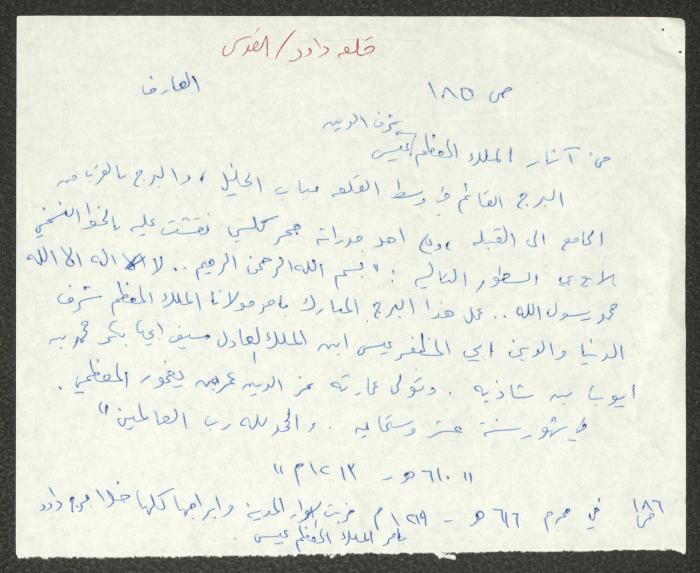 قلعه داود / القدس
ص ١٨٥ العارف
شرف الدين
من آثار الملك المعظم عيسى
البرج القائم في وسط القلعه بباب الخليل ، والبرج بالقرب من
الجامع الى القبله ، وفي احد جدرانه حجر كلسي نقشت عليه بالخط النسخي
الايوبي السطور التاليه : " بسم الله الرحمن الرحيم .. لا اله الا الله
محمد رسول الله .. عمل هذا البرج المبارك بامر مولانا الملك المعظم شرف
الدنيا والدين ابي المظفر عيسى ابن الملك العادل سيف ابي بكر محمد بن
ايوب بن شاذيه . وتولى عمارته عز الدين عمر بن يغمور المعظمي .
في شهور سنة عشر وستمايه . والحمد لله رب العالمين "
" ٦١٠ هـ - ١٢١٣ م "
ص ١٨٦ في محرم ٦١٦ هـ - ١٢١٩ م خربت اسوار المدينة وابراجها كلها خلا برج داود
بامر الملك المعظم عيسى